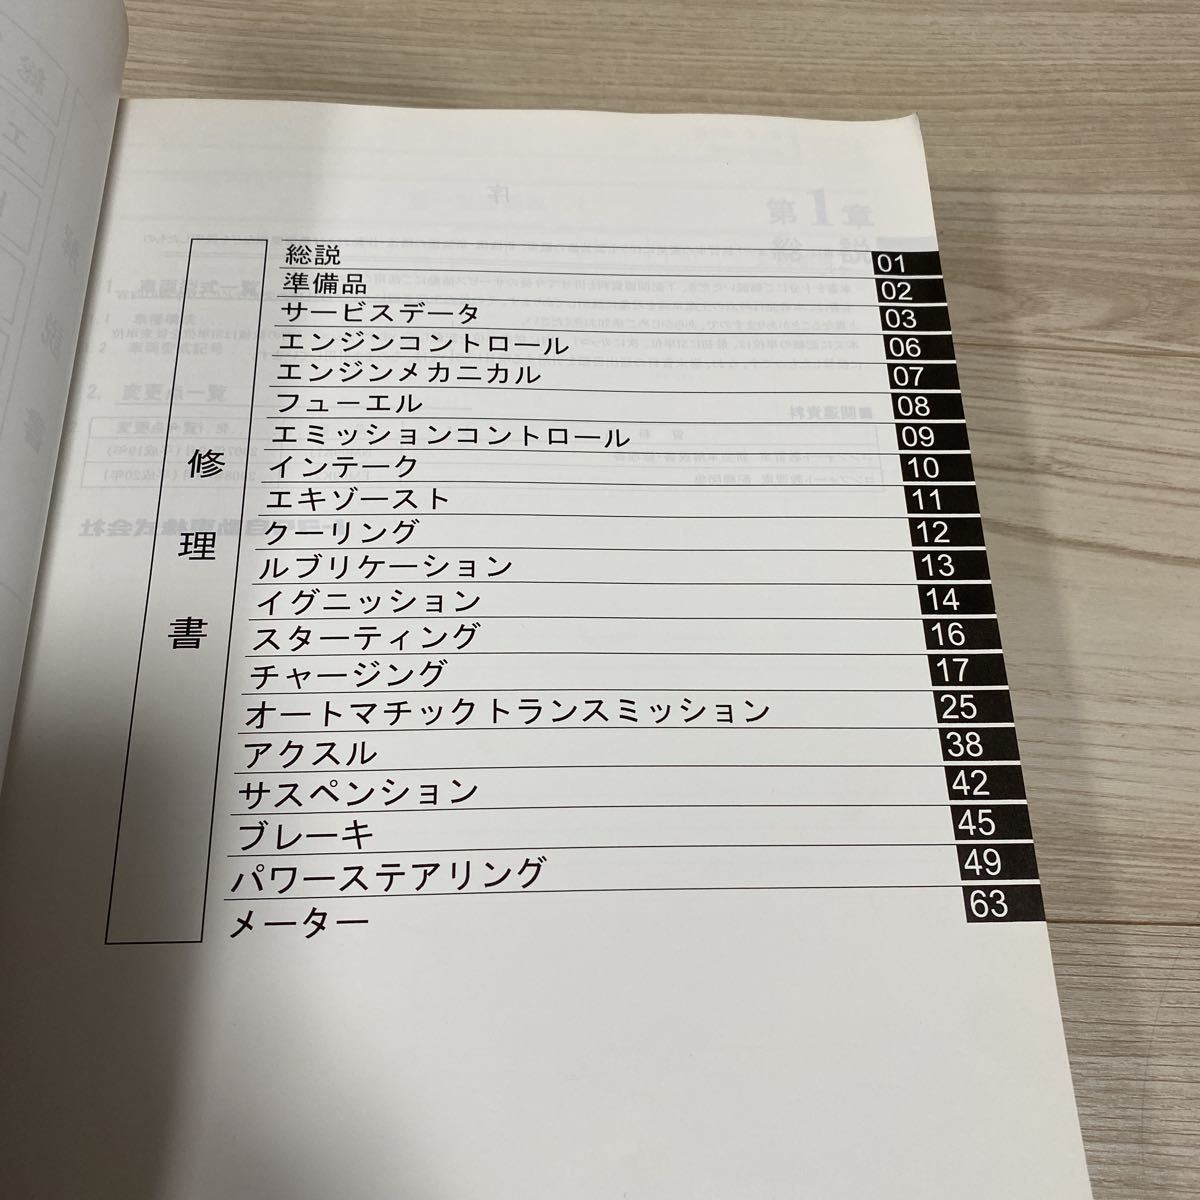 修理書
総説 01
準備品 02
サービスデータ 03
エンジンコントロール 06
エンジンメカニカル 07
フューエル 08
エミッションコントロール 09
インテーク 10
エキゾースト 11
クーリング 12
ルブリケーション 13
イグニッション 14
スターティング 16
チャージング 17
オートマチックトランスミッション 25
アクスル 38
サスペンション 42
ブレーキ 45
パワーステアリング 49
メーター 63